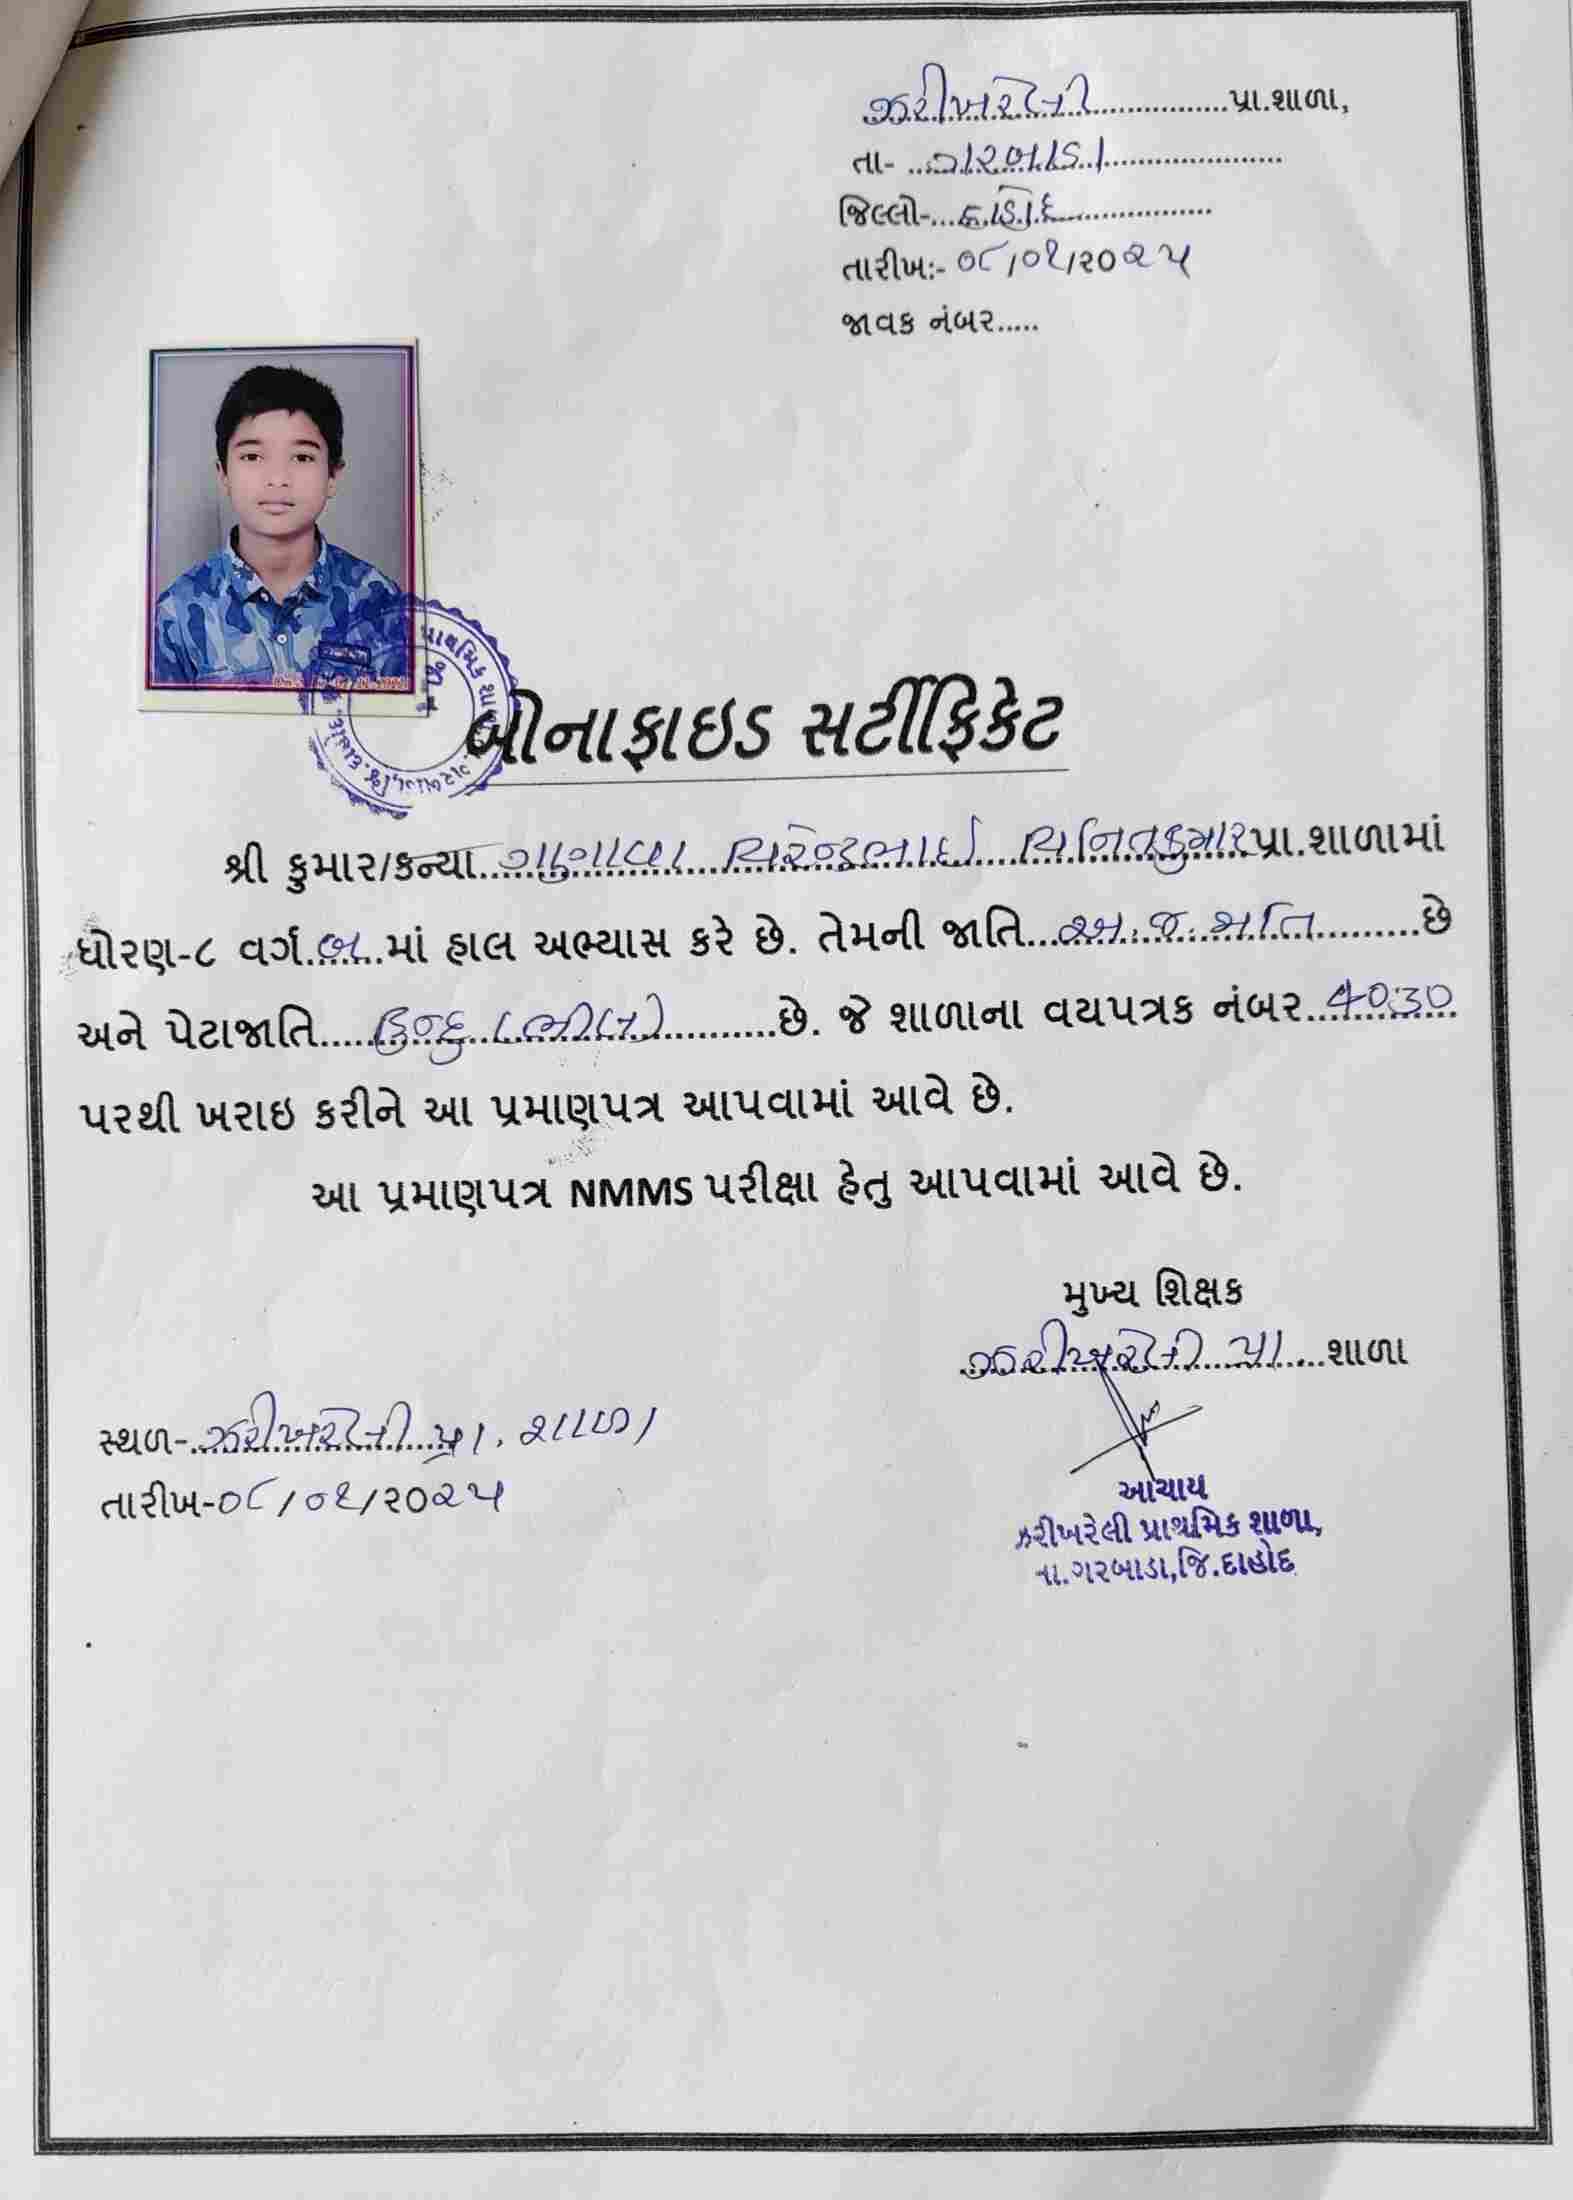 ઝરીખરેલી..............પ્રા.શાળા,
તા- ગરબાડા......................
જિલ્લો-...દાહોદ..................
તારીખ:- ૦૮/૦૧/૨૦૨૫
જાવક નંબર.....
બોનાફાઇડ સર્ટીફિકેટ
શ્રી કુમાર/કન્યા.......પ્રા.શાળામાં
ધોરણ-૮ વર્ગ.બ...માં હાલ અભ્યાસ કરે છે. તેમની જાતિ...અ.જ.જાતિ.........છે
અને પેટાજાતિ....હિન્દુ (ભીલ)..........છે. જે શાળાના વયપત્રક નંબર..4030
પરથી ખરાઇ કરીને આ પ્રમાણપત્ર આપવામાં આવે છે.
આ પ્રમાણપત્ર NMMS પરીક્ષા હેતુ આપવામાં આવે છે.
મુખ્ય શિક્ષક
ઝરીખરેલી પ્રા....શાળા
સ્થળ-ઝરીખરેલી પ્રા. શાળા
તારીખ-૦૮/૦૧/૨૦૨૫
આચાર્ય
ઝરીખરેલી પ્રાથમિક શાળા,
તા.ગરબાડા,જિ.દાહોદ